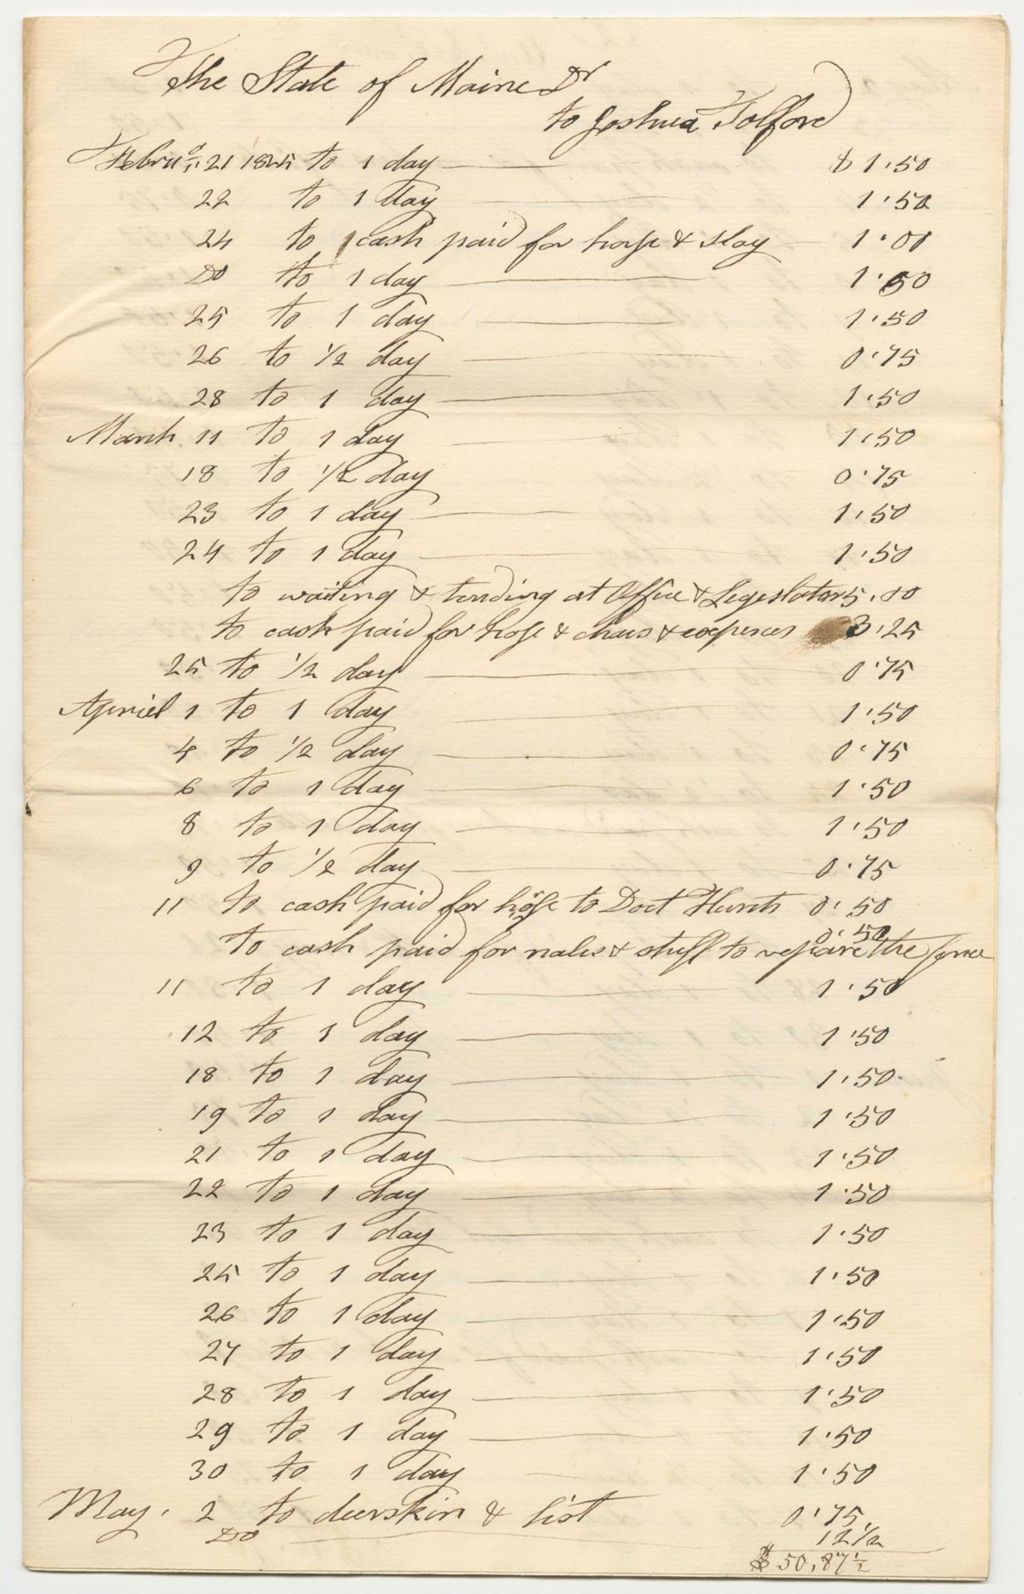 The State of Maine Dr
to Joshua Tolford
Febru'y 21 1825 to 1 day $ 1.50
22 to 1 day 1.50
24 to cash paid for horse & slay 1.00
Do to 1 day 1.50
25 to 1 day 1.50
26 to 1/2 day 0.75
28 to 1 day 1.50
March 11 to 1 day 1.50
18 to 1/2 day 0.75
23 to 1 day 1.50
24 to 1 day 1.50
to waiting & tending at Office & Legeslators 5.00
to cash paid for hose & chais & expences 3.25
25 to 1/2 day 0.75
Apriel 1 to 1 day 1.50
4 to 1/2 day 0.75
6 to 1 day 1.50
8 to 1 day 1.50
9 to 1/2 day 0.75
11 to cash paid for hose to Doct Hunts 0.50
to cash paid for nales & stuff to repare the fence 0.50
11 to 1 day 1.50
12 to 1 day 1.50
18 to 1 day 1.50
19 to 1 day 1.50
21 to 1 day 1.50
22 to 1 day 1.50
23 to 1 day 1.50
25 to 1 day 1.50
26 to 1 day 1.50
27 to 1 day 1.50
28 to 1 day 1.50
29 to 1 day 1.50
30 to 1 day 1.50
May 2 to deerskin & list 0.75
Do 12 1/2
$ 50,87 1/2